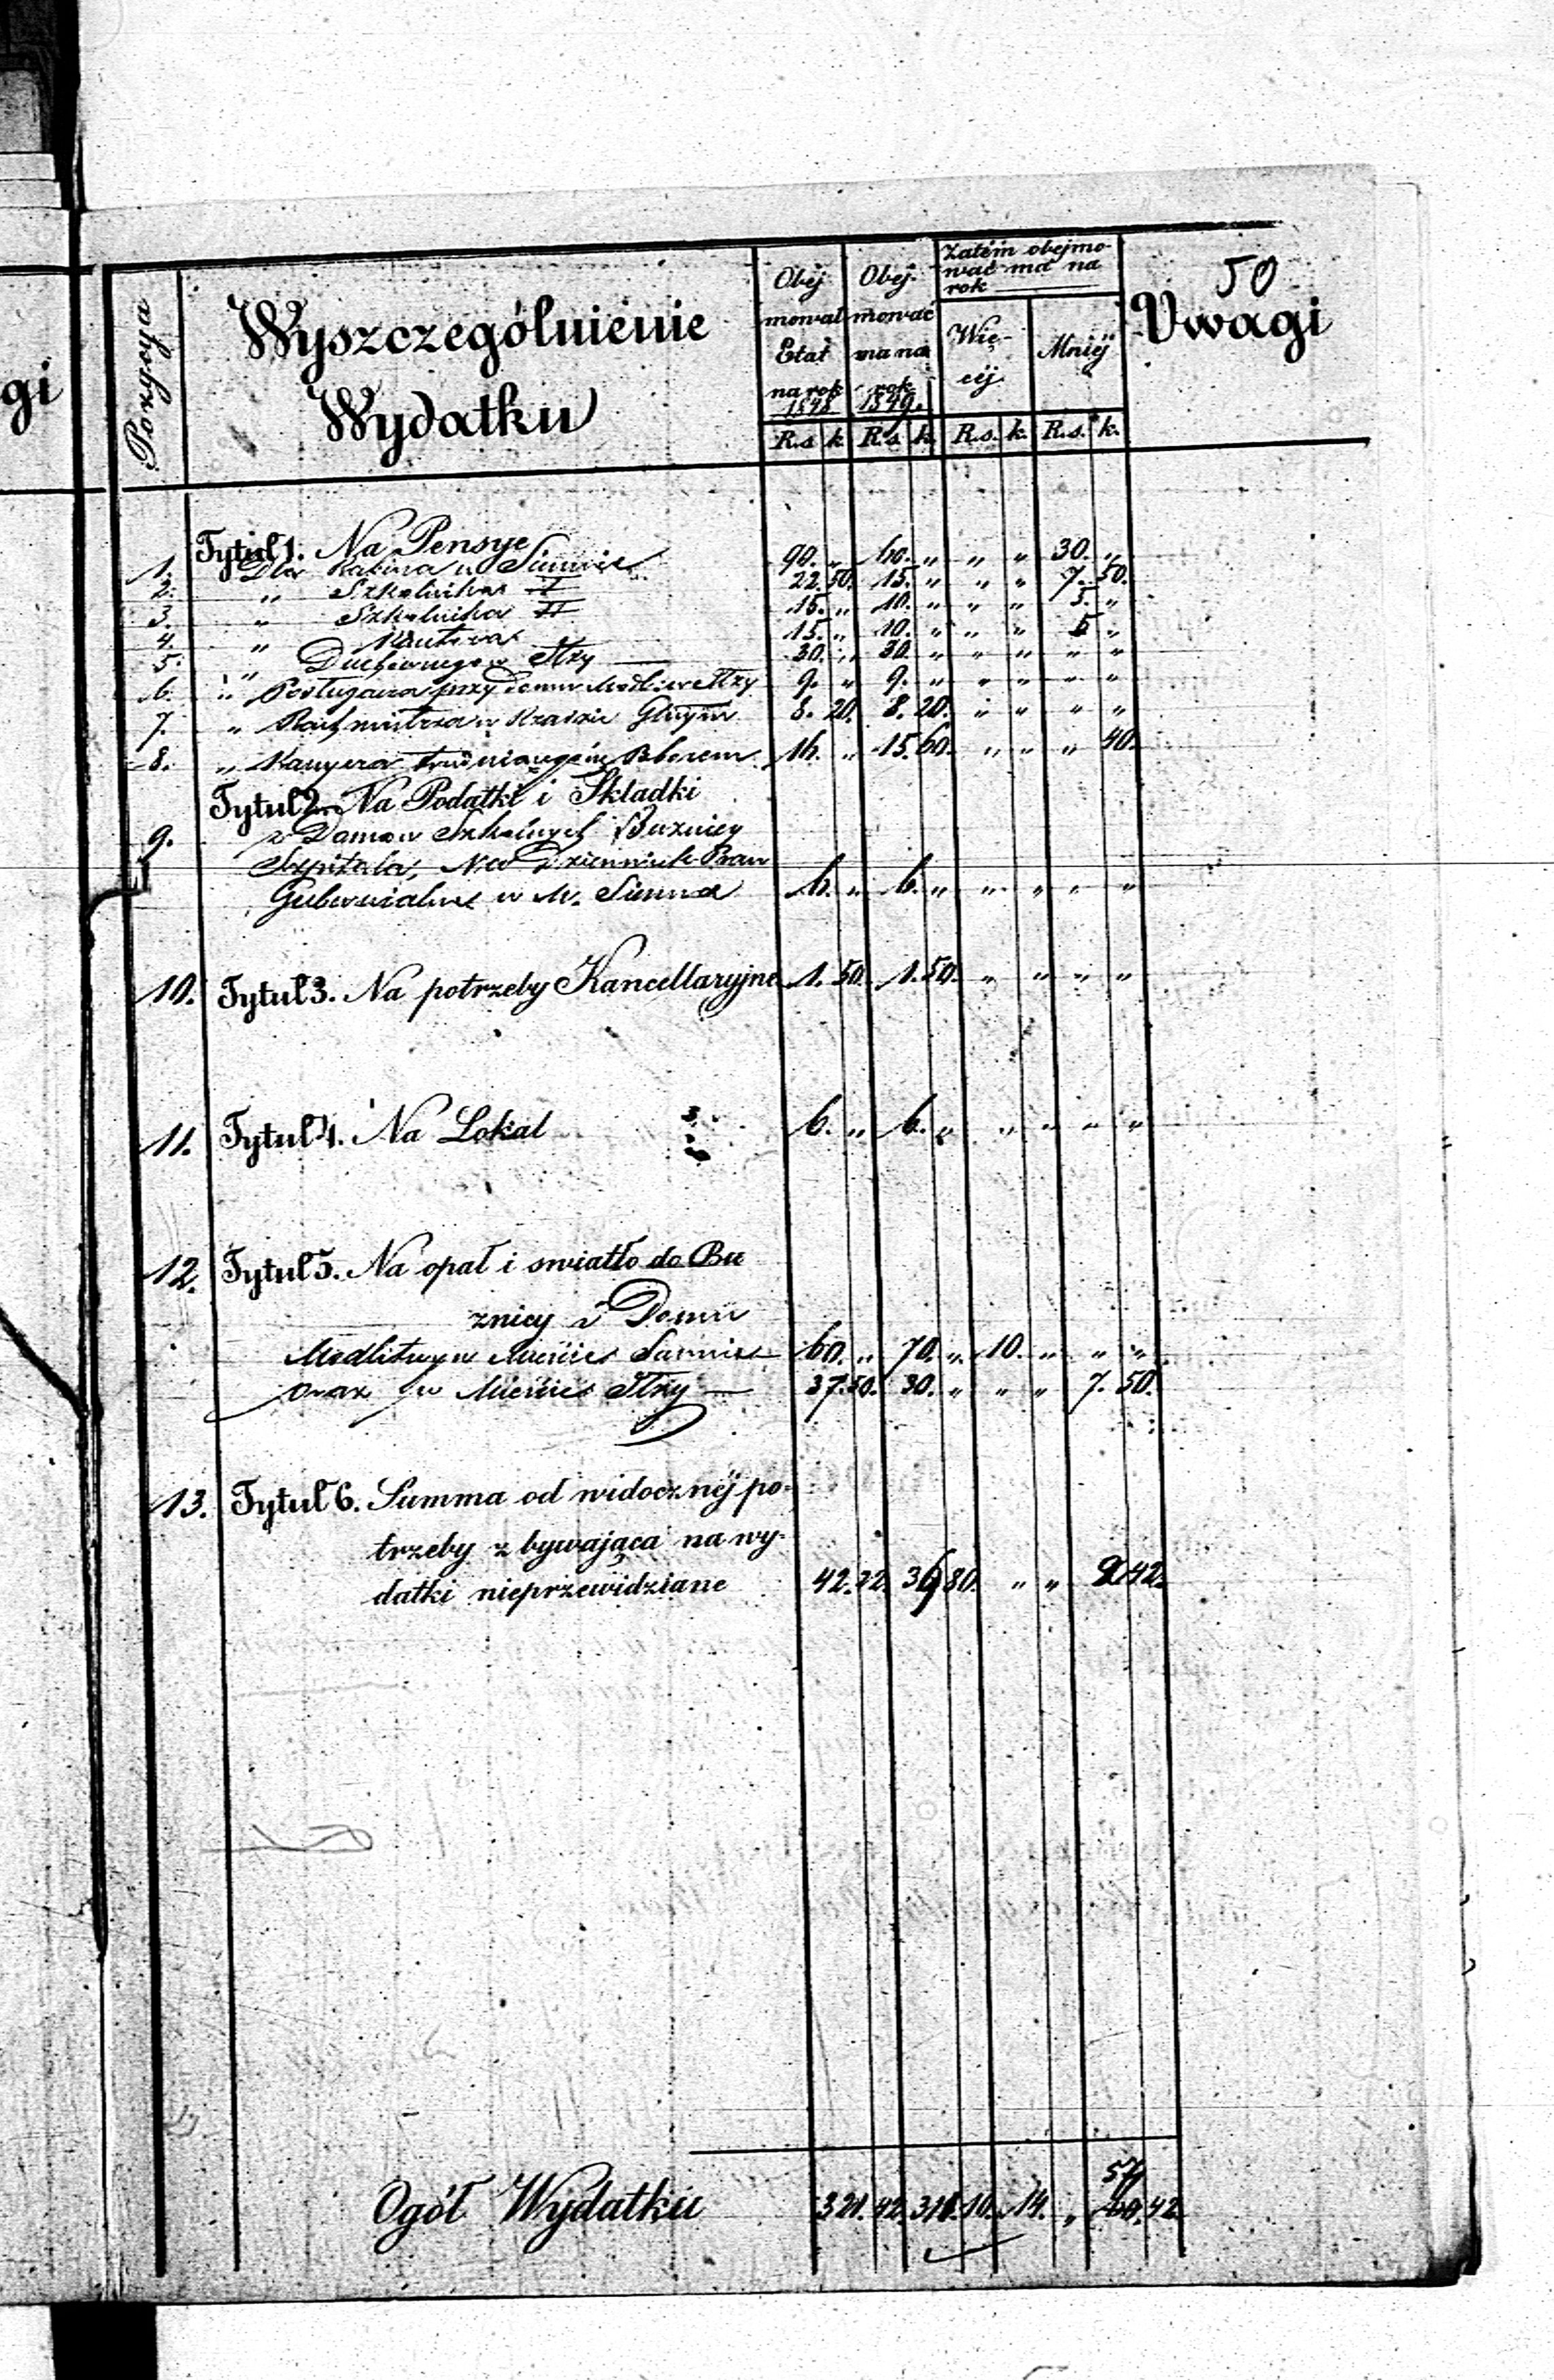 50
gi
Pozycya
Wyszczególnienie
Wydatku
Obej
mował
Etat
na rok
1848
Obej-
mować
ma na
rok
1849.
Zatém obejmo-
wać ma na
rok
Wię-
céj
Mniéj
Uwagi
R.s. k. R.s. k. R.s. k. R.s. k.
Tytuł 1. Na Pensye
1. Dla Rabina w 90. „ 60. „ „ „ 30. „
2. „ Szkolnika I 22. 50. 15. „ „ „ 7. 50.
3. „ Szkolnika II 15. „ 10. „ „ „ 5. „
4. „ Kantora 15. „ 10. „ „ „ 5 „
5. „ Duchownego w 30. „ 30. „ „ „ „ „
6. „ Posługacza przy Domu Modlitw 9. „ 9. „ „ „ „ „
7. „ w 8. 20. 8. 20. „ „ „ „
8. „ Kassyera trudniącego się Poborem 16. „ 15. 60. „ „ „ 40.
Tytuł 2. Na Podatki i Składki
9. z Domów Szkolnych Bużnicy
Szpitala, Na Dziennik Praw
Gubernialne w M. 6. „ 6. „ „ „ „ „
10. Tytuł 3. Na potrzeby Kancellaryjne 1. 50. 1. 50. „ „ „ „
11. Tytuł 4. Na Lokal 6. „ 6. „ „ „ „ „
12. Tytuł 5. Na opał i swiatło do Bu
znicy i Domu
Modlitwy w Mieście 60. „ 70. „ 10. „ „ „
oraz w Mieście 37. 50. 30. „ „ „ 7. 50.
13. Tytuł 6. Summa od widocznéj po-
trzeby zbywająca na wy-
datki nieprzewidziane 80. „ „ 42.
Ogół Wydatku 42. 10. 42